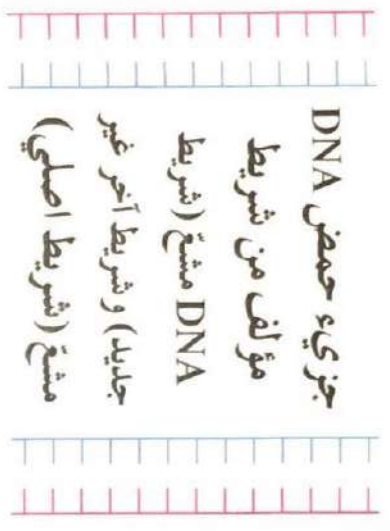 جزيء حمض DNA
مؤلف من شريط
DNA مشعّ (شريط
جديد) وشريط آخر غير
مشعّ (شريط اصلي)